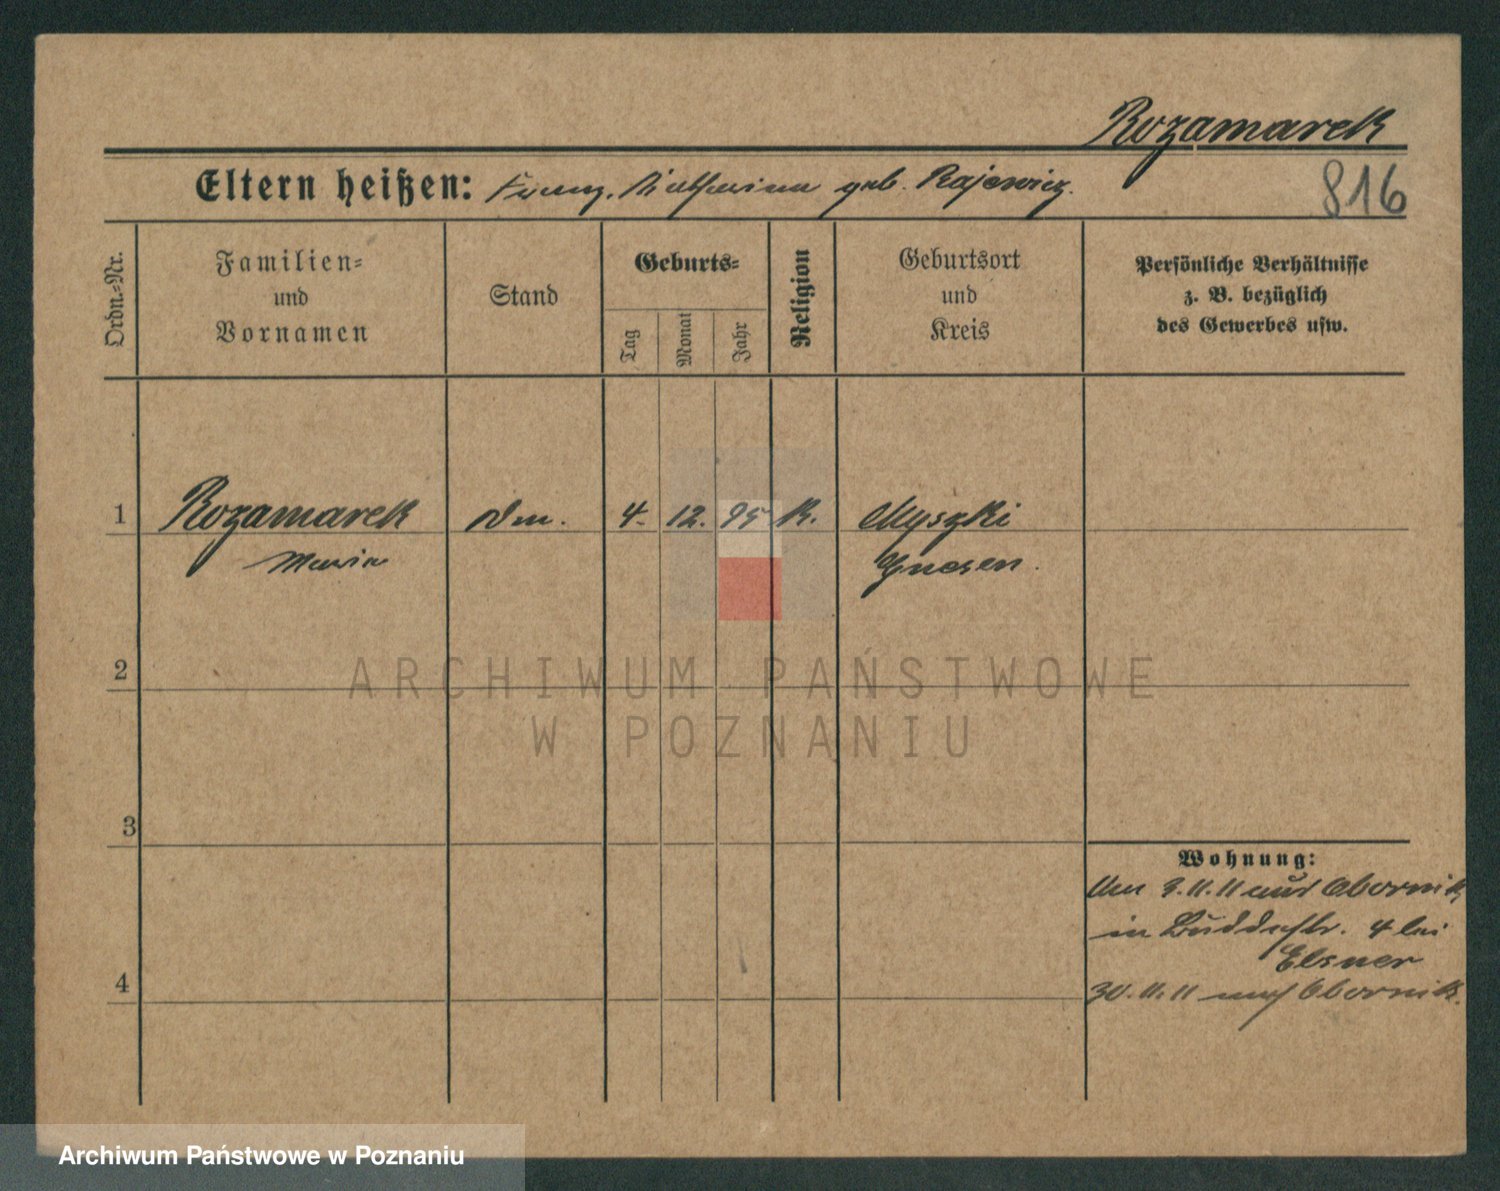 Rozamarek
Eltern heißen: Franz, Katharina geb. Rajewicz.
816
Ordn.-Nr.
Familien-
und
Vornamen
Stand
Geburts-
Tag
Monat
Jahr
Religion
Geburtsort
und
Kreis
Persönliche Verhältnisse
z. B. bezüglich
des Gewerbes usw.
1 Rozamarek Dm. 4. 12. 95 K. Myszki
Maria Gnesen.
2
ARCHIWUM PAŃSTWOWE
W POZNANIU
3
Wohnung:
Am 3.11.11 aus Obornik
in Buddestr. 4 bei
Elsner
4
30.11.11 nach Obornik.
Archiwum Państwowe w Poznaniu